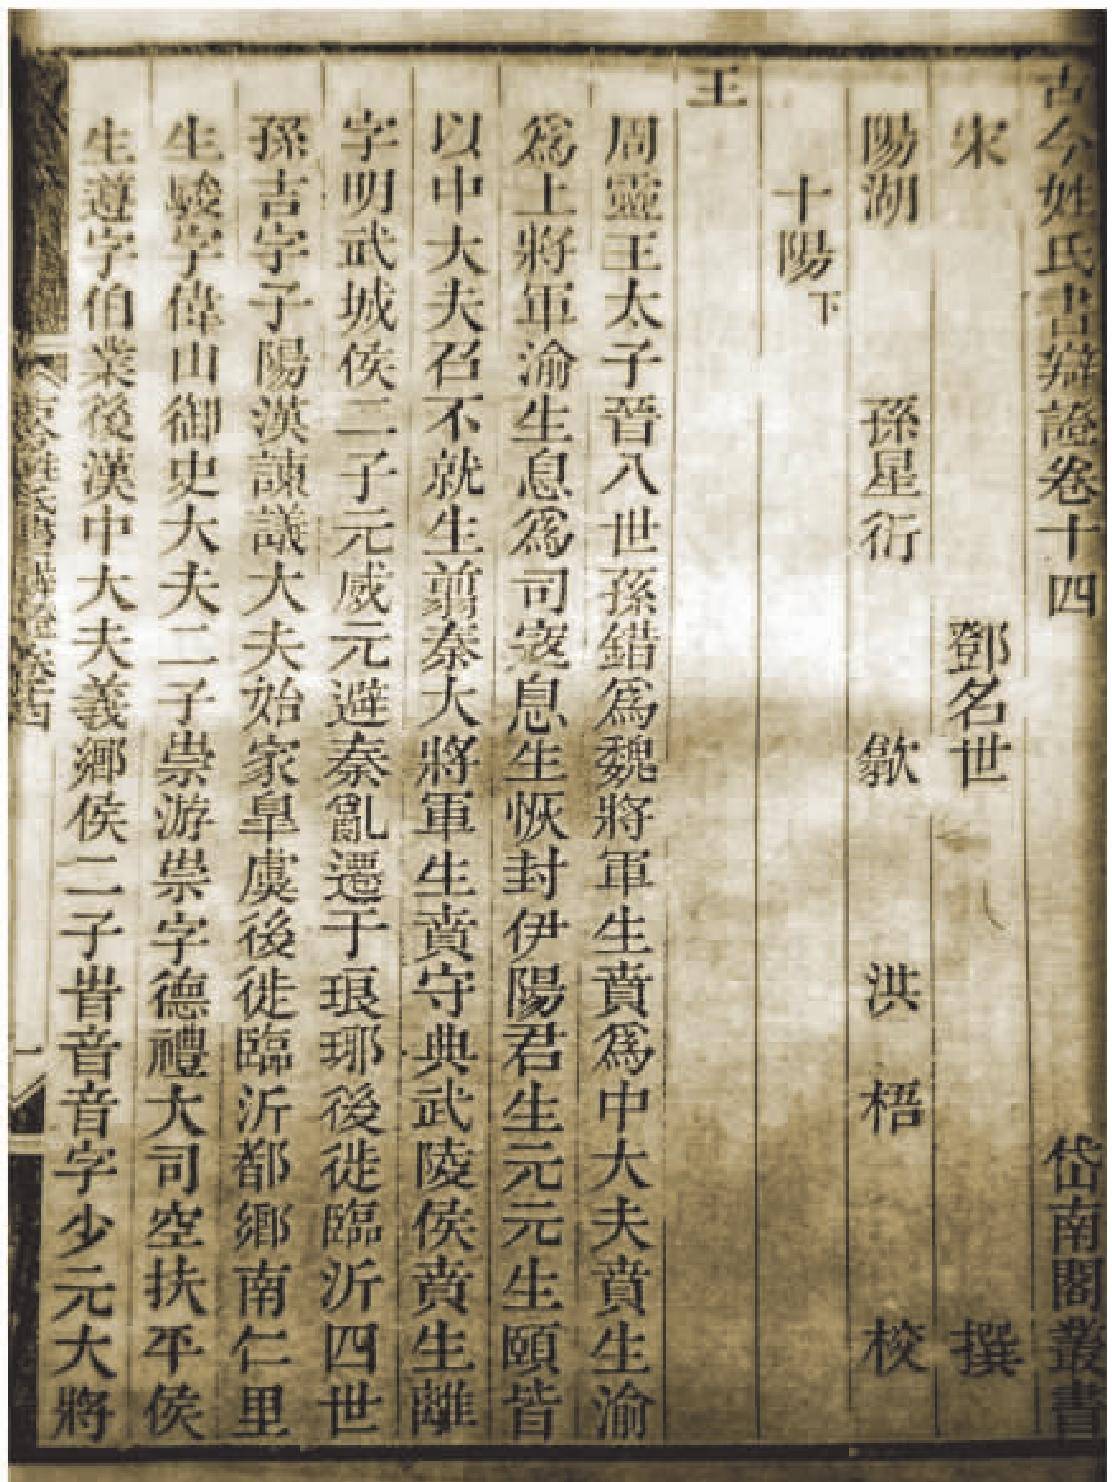 古今姓氏書辯證卷十四 岱南閣叢書
宋 鄧名世 撰
陽湖 孫星衍 歙 洪梧 校
十陽下
王
周靈王太子晉八世孫錯爲魏將軍生賁爲中大夫賁生渝
爲上將軍渝生息爲司寇息生恢封伊陽君生元元生頤皆
以中大夫召不就生翦秦大將軍生賁守典武陵侯賁生離
字明武城侯二子元威元避秦亂遷于琅琊後徙臨沂四世
孫吉字子陽漢諫議大夫始家皐虞後徙臨沂都鄉南仁里
生駿字偉山御史大夫二子崇游崇字德禮大司空扶平侯
生遵字伯業後漢中大夫義鄉侯二子旹音音字少元大將